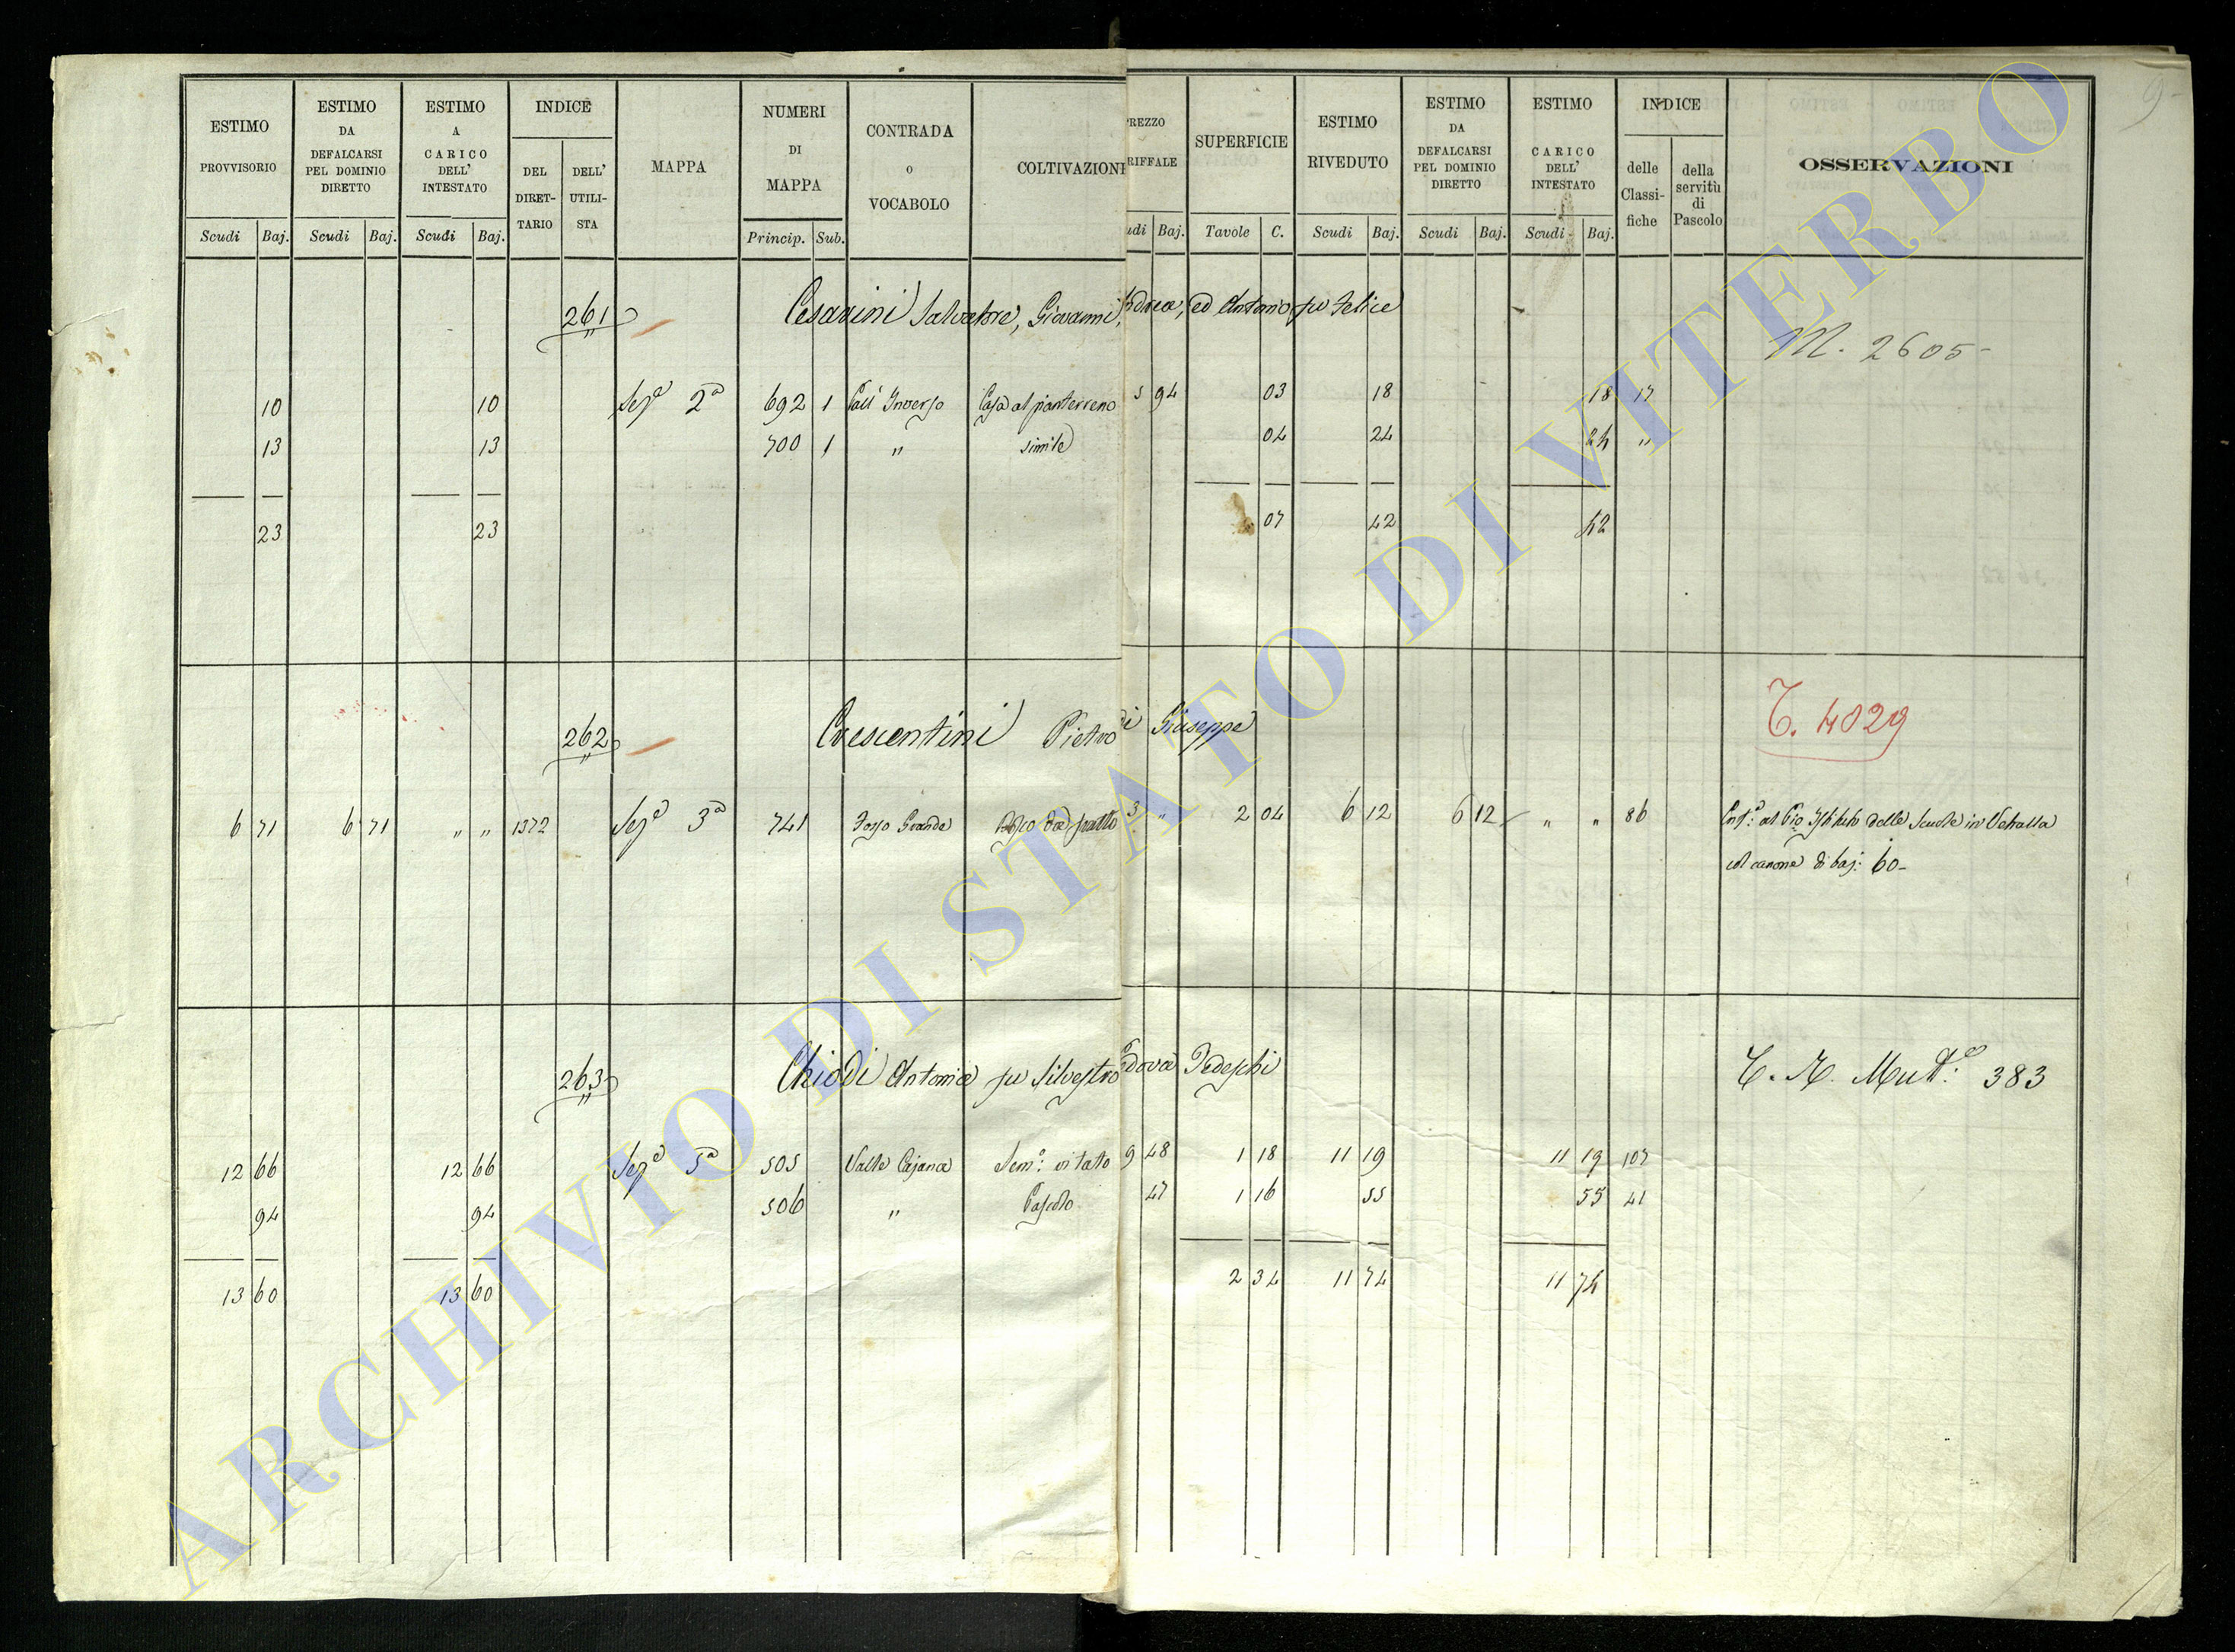 ESTIMO PROVVISORIO | ESTIMO DA DEFALCARSI PEL DOMINIO DIRETTO | ESTIMO A CARICO DELL' INTESTATO | INDICE | MAPPA | NUMERI DI MAPPA | CONTRADA o VOCABOLO | COLTIVAZIONI | REZZO RIFFALE | SUPERFICIE | ESTIMO RIVEDUTO | ESTIMO DA DEFALCARSI PEL DOMINIO DIRETTO | ESTIMO A CARICO DELL' INTESTATO | INDICE | OSSERVAZIONI
DEL DIRET-TARIO | DELL' UTILI-STA | delle Classi-fiche | della servitù di Pascolo
Scudi | Baj. | Scudi | Baj. | Scudi | Baj. | Princip. | Sub. | udi | Baj. | Tavole | C. | Scudi | Baj. | Scudi | Baj. | Scudi | Baj.
9
261 Cesarini Salvatore, Giovanni, Andrea, ed Antonio fu Felice
M. 2605
10 | 10 | Sezª 2ª | 692 | 1 | Call' Inverso | Casa al pianterreno | 5 | 94 | 03 | 18 | 18 | 17
13 | 13 | 700 | 1 | " | simile | 04 | 24 | 24 | "
23 | 23 | 07 | 42 | 42
262 Crescentini Pietro di Giuseppe
T. 4029
6 | 71 | 6 | 71 | " | " | 1372 | Sezª 3ª | 741 | Fosso Grande | Bosco da frutto | 3 | " | 2 | 04 | 6 | 12 | 6 | 12 | " | " | 86 | Enfª: al Pio Istituto delle Scuole in Vetralla
col canone di baj: 60
263 Chiodi Antonia fu Silvestro Vedova Tedeschi
T. N. Mutª: 383
12 | 66 | 12 | 66 | Sezª 5ª | 505 | Valle Cajana | Semº: vitato | 9 | 48 | 1 | 18 | 11 | 19 | 11 | 19 | 107
94 | 94 | 506 | " | Pascolo | 47 | 1 | 16 | 55 | 55 | 41
13 | 60 | 13 | 60 | 2 | 34 | 11 | 74 | 11 | 74
ARCHIVIO DI STATO DI VITERBO